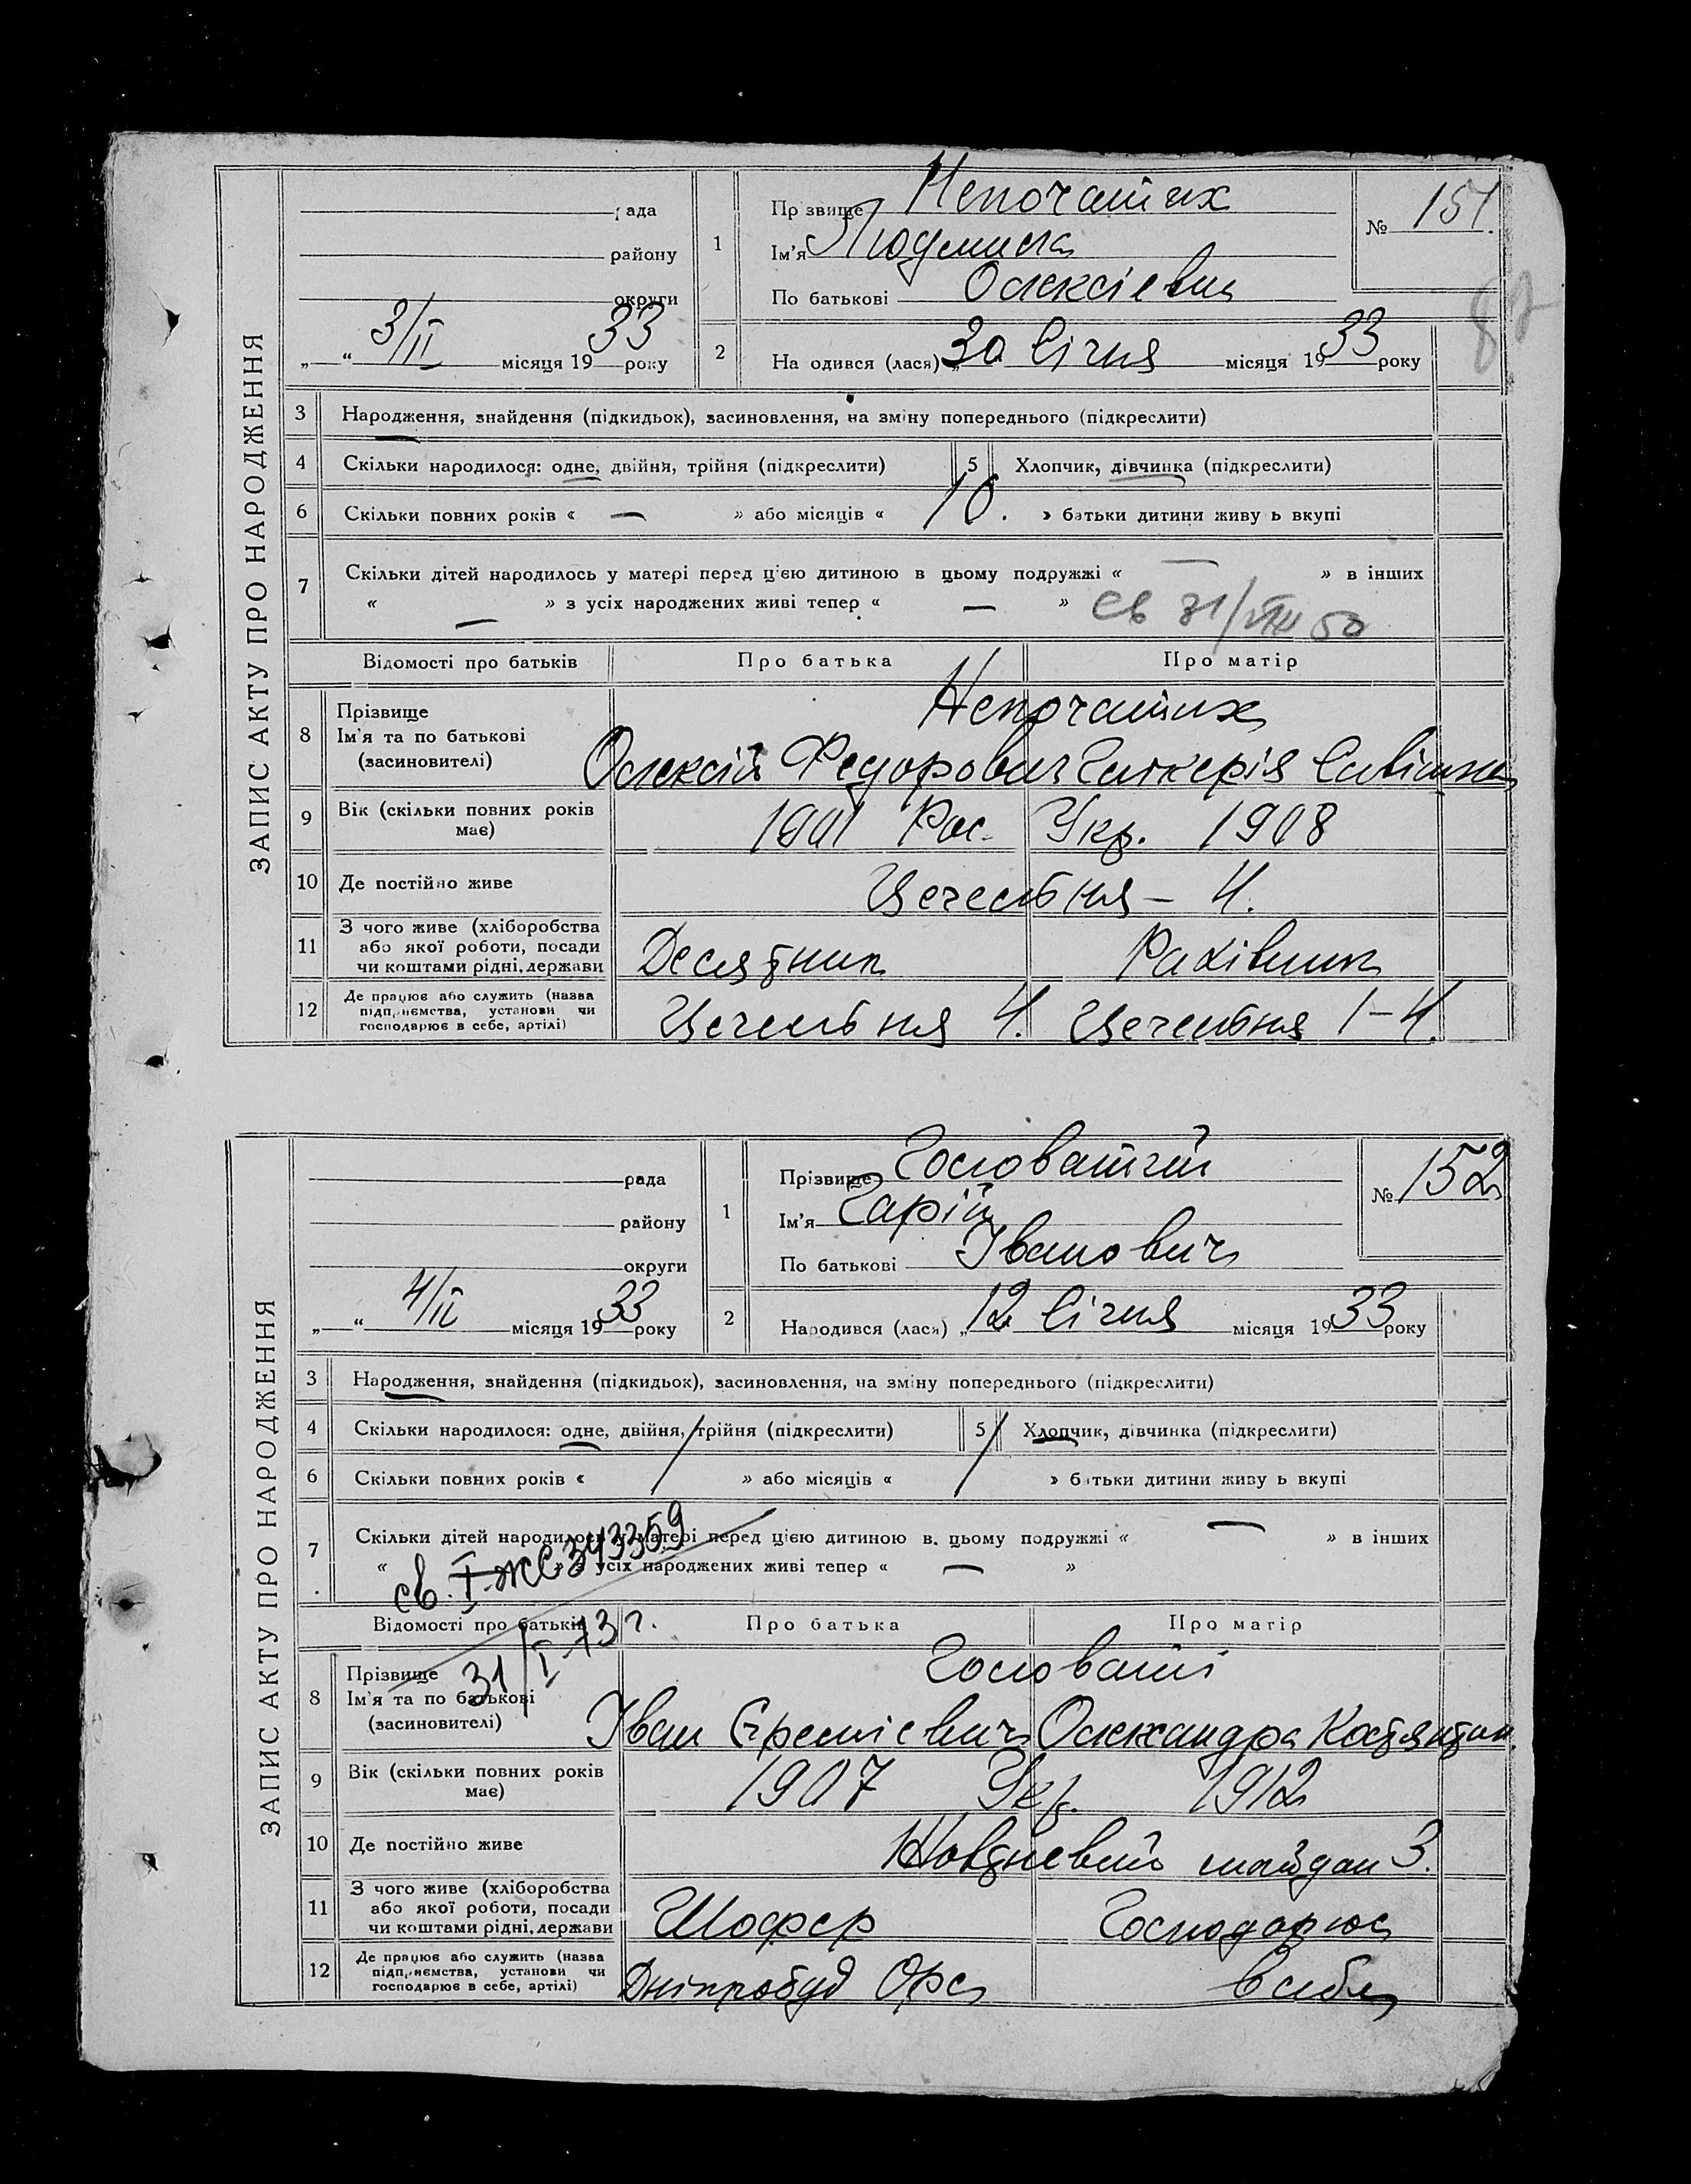 ЗАПИС АКТУ ПРО НАРОДЖЕННЯ
рада
району
округи
„ “ 3/II місяця 1933 року
1
Прізвище Непочатих
Ім'я Людмила
По батькові Олексіевна
№ 151.
2
Народився (лася) „30 Січня місяця 1933 року
3 Народження, знайдення (підкидьок), засиновлення, на зміну попереднього (підкреслити)
4 Скільки народилося: одне, двійня, трійня (підкреслити) 5 Хлопчик, дівчинка (підкреслити)
6 Скільки повних років « — » або місяців « 10. » батьки дитини живуть вкупі
7 Скільки дітей народилось у матері перед цією дитиною в цьому подружжі « — » в інших
« — » з усіх народжених живі тепер « — »
св 31/VIII 50
Відомості про батьків Про батька Про матір
8 Прізвище
Ім'я та по батькові
(засиновителі)
Непочатих
Олексій Федорович
9 Вік (скільки повних років має)
1901 Рос. Укр. 1908
10 Де постійно живе
4.
11 З чого живе (хліборобства або якої роботи, посади чи коштами рідні, держави
Десятник Рахівник
12 Де працює або служить (назва підприємства, установи чи господарює в себе, артілі)
4. 1-4.
ЗАПИС АКТУ ПРО НАРОДЖЕННЯ
рада
району
округи
„ “ 4/II місяця 1933 року
1
Прізвище
Ім'я Гарій
По батькові Іванович
№ 152
2
Народився (лася) „12 Січня місяця 1933 року
3 Народження, знайдення (підкидьок), засиновлення, на зміну попереднього (підкреслити)
4 Скільки народилося: одне, двійня, трійня (підкреслити) 5 Хлопчик, дівчинка (підкреслити)
6 Скільки повних років « / » або місяців « / » батьки дитини живуть вкупі
7 Скільки дітей народилось у матері перед цією дитиною в цьому подружжі « — » в інших
« » з усіх народжених живі тепер « — »
св. I-ЖС 343359
31/I-73 г.
Відомості про батьків Про батька Про матір
8 Прізвище
Ім'я та по батькові
(засиновителі)
Іван Єреміевич Олександра Костянтин.
9 Вік (скільки повних років має)
1907 Укр. 1912
10 Де постійно живе
майдан 3.
11 З чого живе (хліборобства або якої роботи, посади чи коштами рідні, держави
Шофер Господарює
12 Де працює або служить (назва підприємства, установи чи господарює в себе, артілі)
Дніпробуд Орс в себе